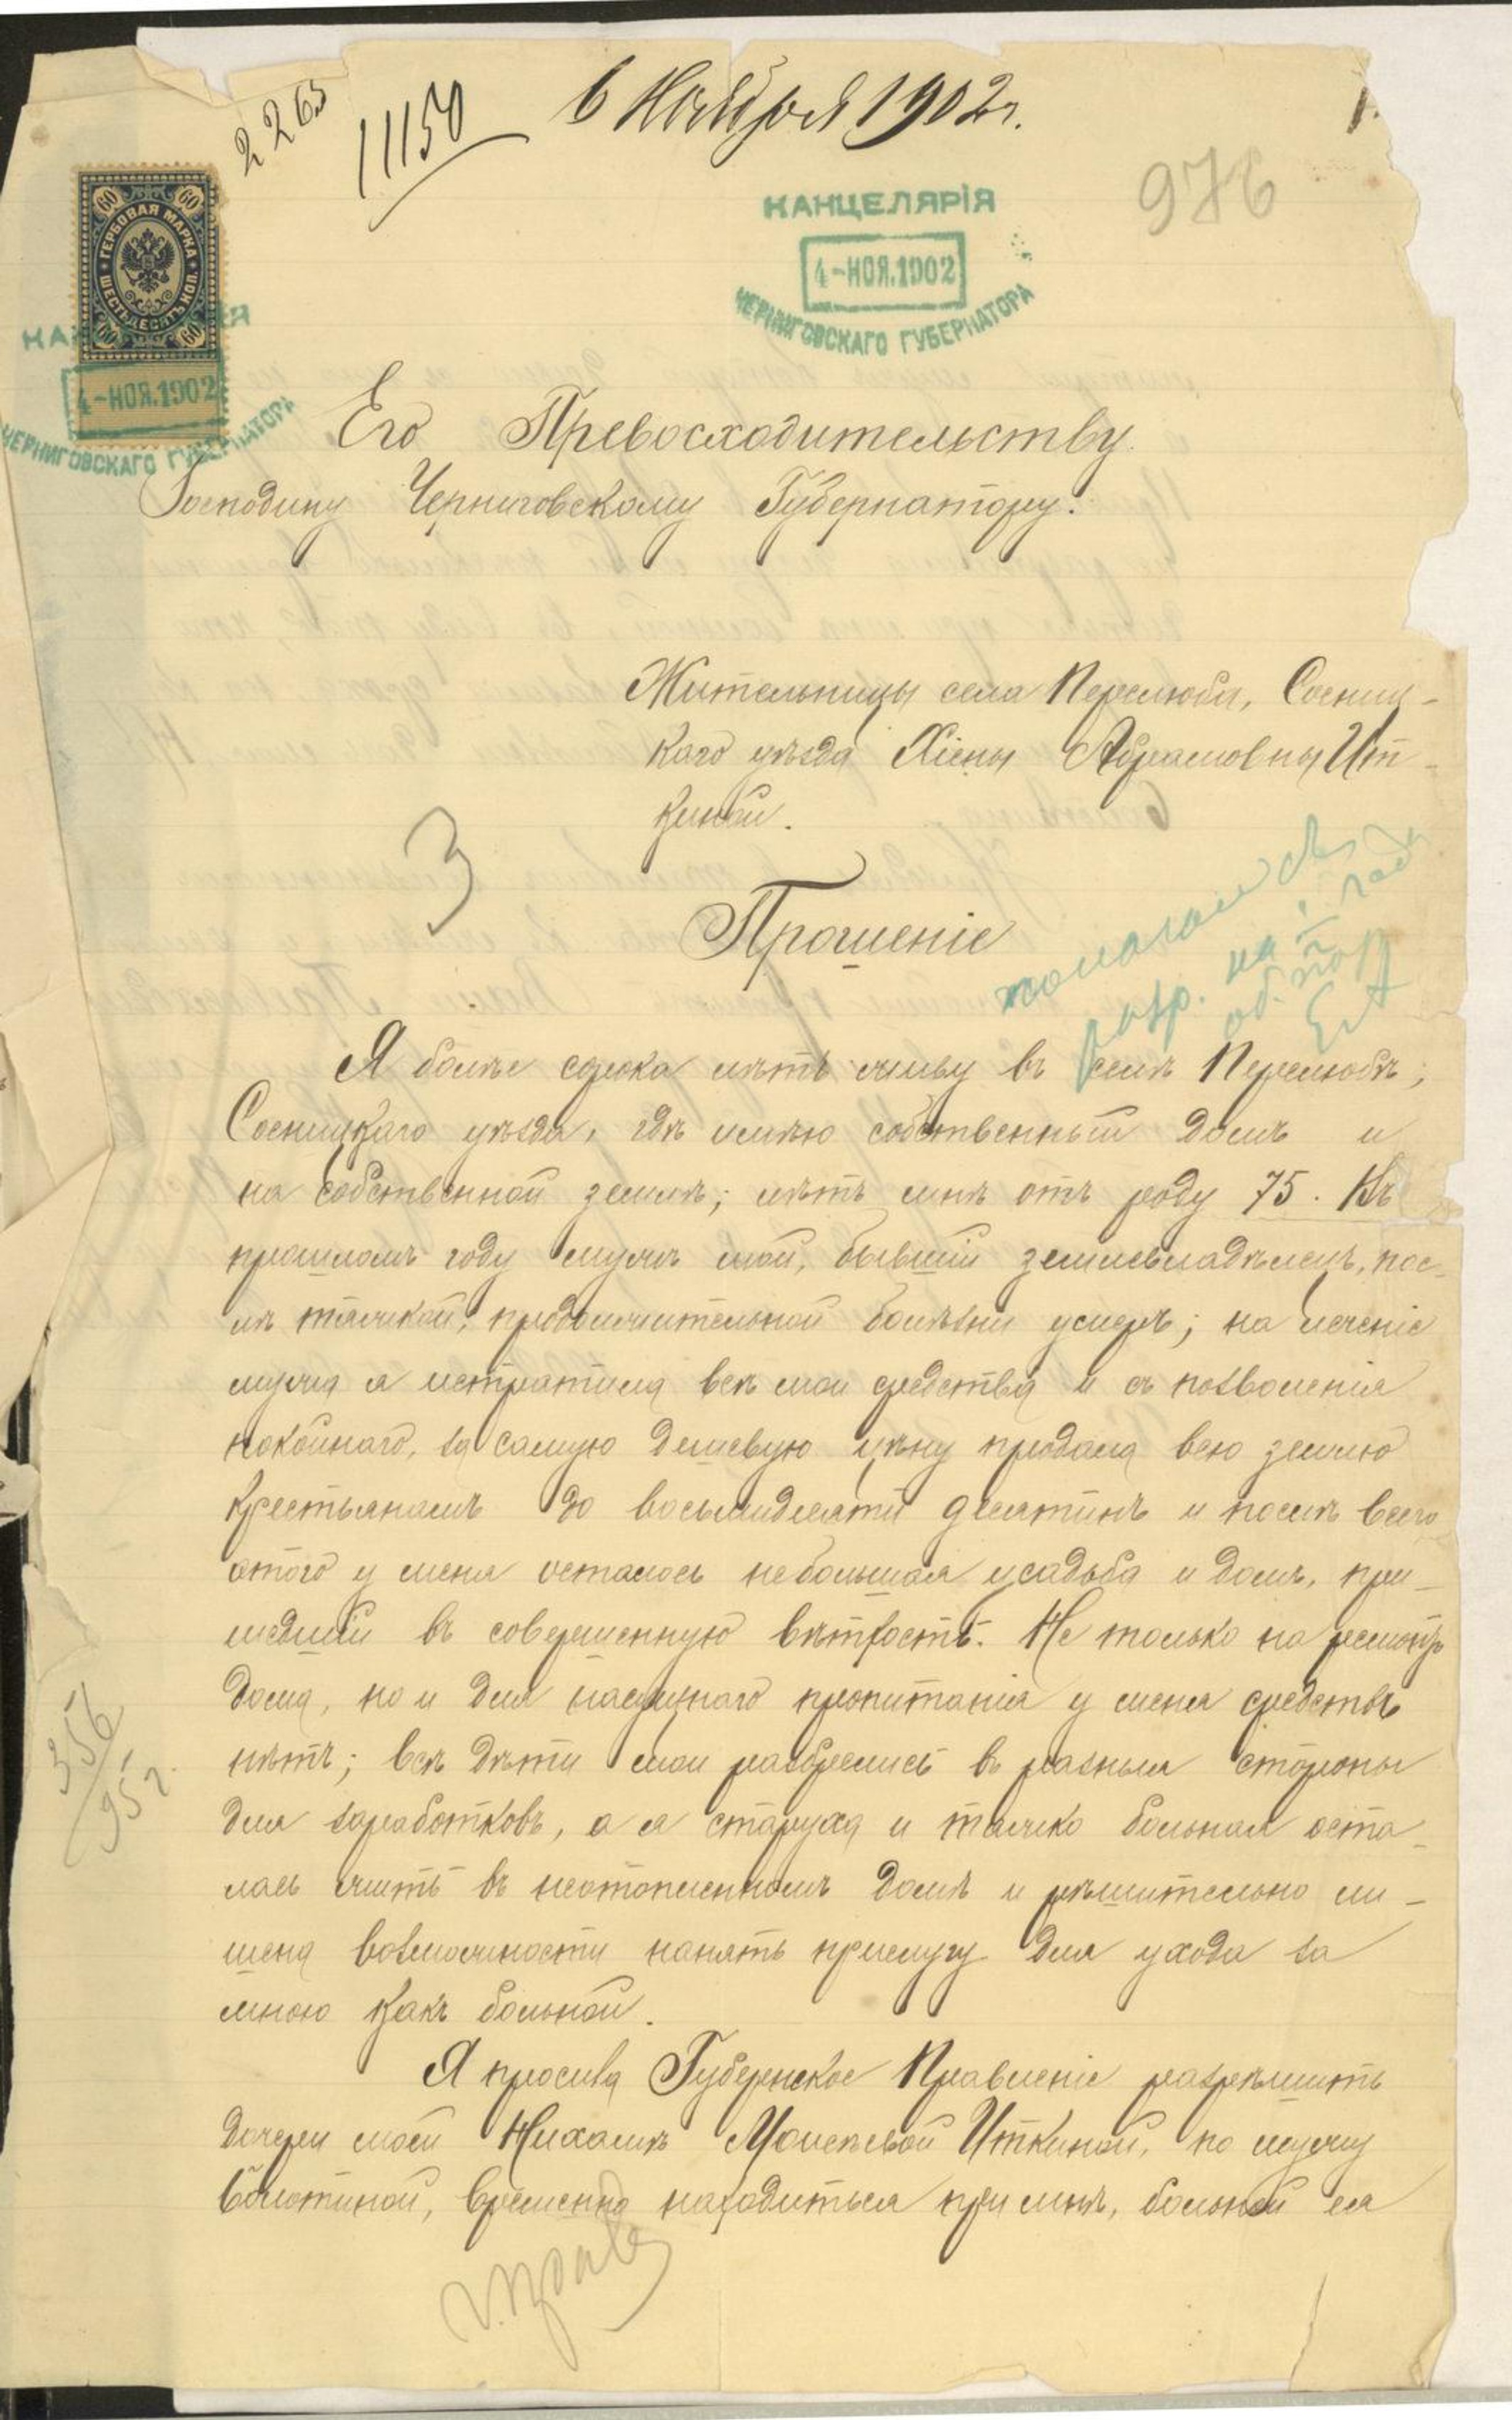 2265
11150
6 Ноября 1902 г.
1.
976
КАНЦЕЛЯРІЯ
4-НОЯ.1902
ЧЕРНИГОВСКАГО ГУБЕРНАТОРА
60 60
ГЕРБОВАЯ МАРКА
ШЕСТЬДЕСЯТЪ КОП.
60 60
4-НОЯ.1902
ЧЕРНИГОВСКАГО ГУБЕРНАТОРА
Его Превосходительству
Господину Черниговскому Губернатору.
Жительницы села Перелюба, Сосниц-
каго уѣзда Хіены Абрамовны Ит-
киной.
3
Прошеніе
разр. на
Я болѣе сорока лѣтъ живу въ селѣ Перелюбѣ,
Сосницкаго уѣзда, гдѣ имѣю собственный домъ и
на собственной землѣ; лѣтъ мнѣ отъ роду 75. Въ
прошломъ году мужъ мой, бывшій землевладѣлецъ, пос-
лѣ тяжкой, продолжительной болѣзни умеръ; на леченіе
мужа я истратила всѣ мои средства и съ позволенія
покойнаго, за самую дешевую цѣну продала всю землю
крестьянамъ до восьмидесяти десятинъ и послѣ всего
этого у меня осталось небольшая усадьба и домъ, при-
шедшій въ совершенную вѣтхость. Не только на ремонтъ
дома, но и для насущнаго пропитанія у меня средствъ
нѣтъ; всѣ дѣти мои разбрелись въ разныя стороны
для заработковъ, а я старуха и тяжко больная оста-
лась жить въ неотопленномъ домѣ и рѣшительно ли-
шена возможности нанять прислугу для ухода за
мною какъ больной.
356
95 г.
Я просила Губернское Правленіе разрѣшить
дочери моей Нихамѣ Моисѣевой Иткиной, по мужу
Болотиной, временно находиться при мнѣ, больной ея